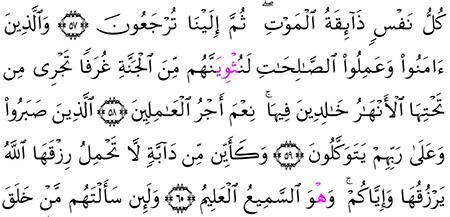 كُلُّ نَفْسٍ ذَآئِقَةُ الْمَوْتِ ۖ ثُمَّ إِلَيْنَا تُرْجَعُونَ ﴿٥٧﴾ وَالَّذِينَ
ءَامَنُواْ وَعَمِلُواْ الصَّـٰلِحَـٰتِ لَنُثْوِيَنَّهُم مِّنَ الْجَنَّةِ غُرَفًا تَجْرِى مِن
تَحْتِهَا الْأَنْهَـٰرُ خَـٰلِدِينَ فِيهَا ۚ نِعْمَ أَجْرُ الْعَـٰمِلِينَ ﴿٥٨﴾ الَّذِينَ صَبَرُواْ
وَعَلَىٰ رَبِّهِمْ يَتَوَكَّلُونَ ﴿٥٩﴾ وَكَأَيِّن مِّن دَآبَّةٍ لَّا تَحْمِلُ رِزْقَهَا اللَّهُ
يَرْزُقُهَا وَإِيَّاكُمْ ۚ وَهْوَ السَّمِيعُ الْعَلِيمُ ﴿٦٠﴾ وَلَئِن سَأَلْتَهُم مَّنْ خَلَقَ